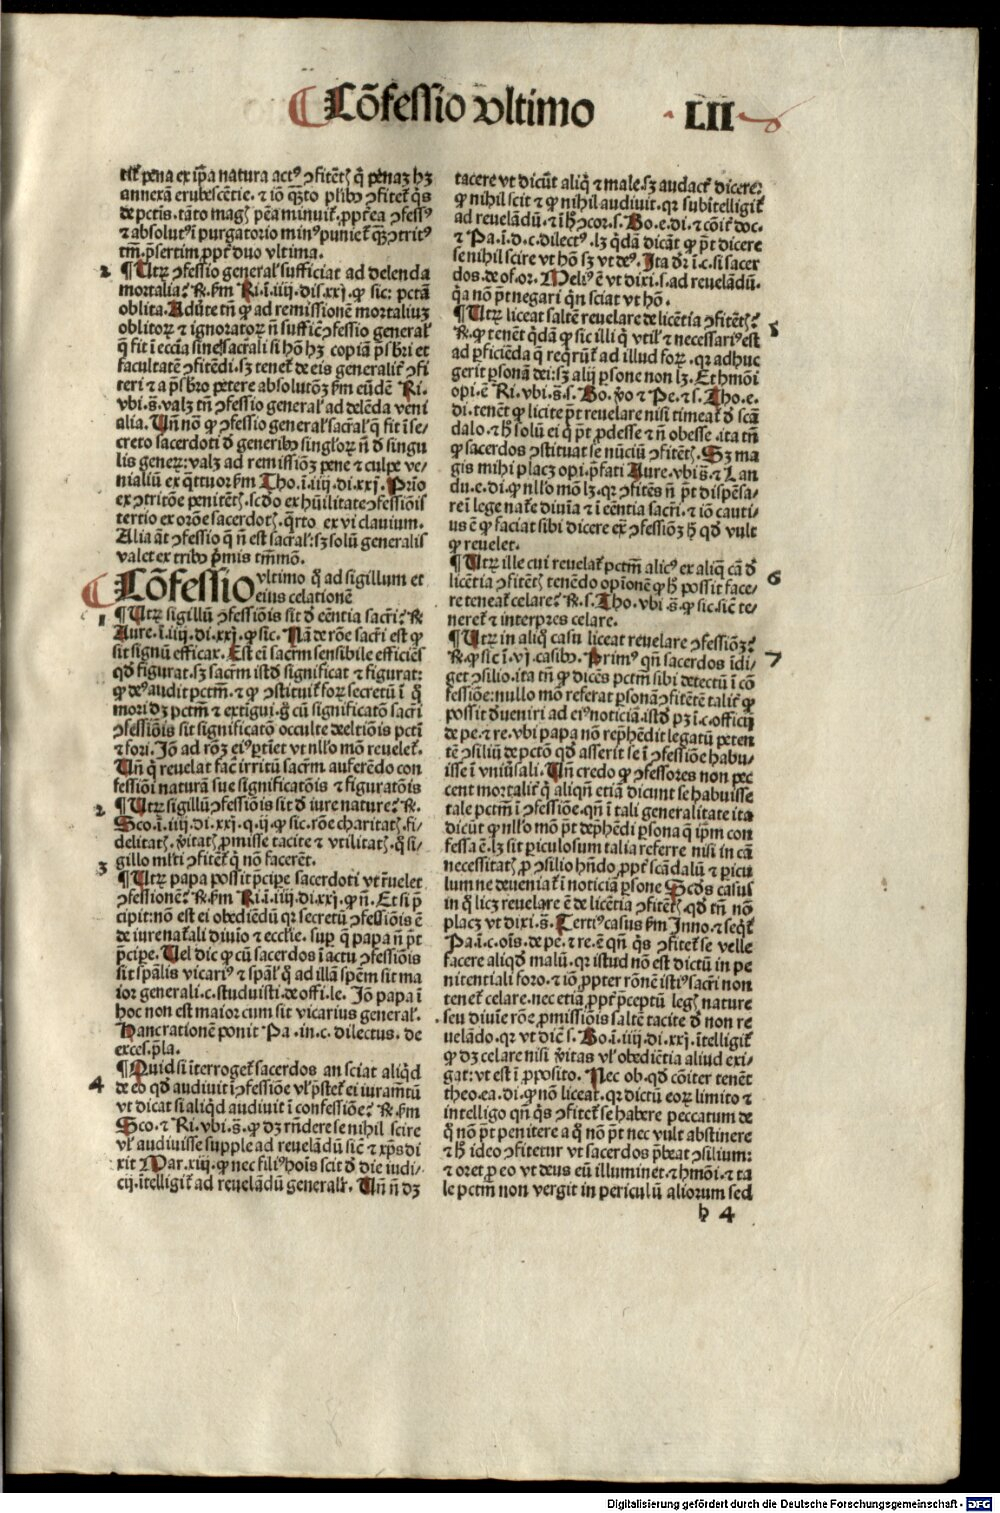 Cõfessio vltimo
LII
tit̃ pena ex ip̃a natura act⁹ ꝯfitẽt̃ q̃ penaʒ hʒ
annexã erubescẽtie. ⁊ iõ qʒto plib⁹ ꝯfitet̃ q̃s
de pctis. tãto mag̃ pẽa minuit̃. ꝓpt̃ea ꝯfess⁹
⁊ absolut⁹ ĩ purgatorio min⁹ puniet̃ qʒ ꝯtrit⁹
tm̃. p̃sertim ꝓpt̃ duo vltima.
2 ¶ Utrꝝ ꝯfessio general̃ sufficiat ad delenda
mortalia? R̃. ẜm Ri. ĩ. iiij. dis. xxj. ꝙ sic: pctã
oblita. Aduẽte tñ ꝙ ad remissionẽ mortaliuʒ
oblitoꝝ ⁊ ignoratoꝝ ñ suffic̃ ꝯfessio general̃
q̃ fit ĩ ecc̃ia sine sacr̃ali si hõ hʒ copiã p̃sbri et
facultatẽ ꝯfitẽdi. sʒ tenet̃ de eis generalit̃ ꝯfi
teri ⁊ a p̃sbro petere absolutõʒ ẜm eũdẽ Ri.
vbi. s̃. valʒ tm̃ ꝯfessio general̃ ad delẽda veni
alia. Uñ nõ ꝙ ꝯfessio general̃ sacr̃al̃ q̃ fit ĩ se/
creto sacerdoti d̃ generib⁹ singl̃oꝝ ñ d̃ singu
lis generꝝ: valʒ ad remissiõʒ pene ⁊ culpe ve/
nialiũ ex q̃ttuor ẜm Tho. ĩ. iiij. di. xxj. Prio
ex ꝯtritõe penitẽt̃. sc̃do ex hũilitate ꝯfessiõis
tertio ex orõne sacerdot̃. q̃rto ex vi clauium.
Alia aũt ꝯfessio q̃ ñ est sacr̃al̃: sʒ solũ generalis
valet ex trib⁹ p̃mis tm̃mõ.
Cõfessio vltimo q̃ ad sigillum et
eius celationẽ
1 ¶ Utrꝝ sigillũ ꝯfessiõis sit d̃ eẽntia sacr̃i? R̃
Aure. ĩ. iiij. di. xxj. ꝙ sic. Nã de rõe sacr̃i est ꝙ
sit signũ efficax. Est ei sacr̃m sensibile efficiẽs
qd̃ figurat. sʒ sacr̃m istd̃ significat ⁊ figurat:
ꝙ de⁹ audit pctm̃. ⁊ ꝙ ꝯstituit̃ foꝝ secretũ ĩ q̃
mori dʒ pctm̃ ⁊ extĩgui. g̃ cũ significatõ sacr̃i
ꝯfessiõis sit significatõ occulte deeltiõis pcti
⁊ fori. Jõ ad rõʒ ei⁹ ꝑtiet vt nl̃lo mõ reuelet̃.
Uñ q̃ reuelat fac̃ irritũ sacr̃m auferẽdo con
fessiõi naturã sue significatõis ⁊ figuratõis
2 ¶ Utrꝝ sigillũ ꝯfessiõis sit d̃ iure nature? R̃.
Sco. ĩ. iiij. di. xxj. q. ij. ꝙ sic. rõe charitat̃. fi/
delitat̃. ṽitat̃ ꝓmisse tacite ⁊ vtilitat̃. q̃ si/
gillo ml̃ti ꝯfitẽt̃ q̃ nõ facerẽt.
3 ¶ Utrꝝ papa possit p̃cipe sacerdoti vt r̃uelet
ꝯfessionẽ? R̃. ẜm Ri. ĩ. iiij. di. xxj. ꝙ ñ. Et si p̃
cipit: nõ est ei obediẽdũ qꝛ secretũ ꝯfessiõis ẽ
de iure nat̃ali diuio ⁊ ecc̃lie. sup q̃ papa ñ p̃t
p̃cipe. Uel dic ꝙ cũ sacerdos ĩ actu ꝯfessiõis
sit sp̃alis vicari⁹ ⁊ sp̃al̃ q̃ ad illã sp̃em sit ma
ior generali. c. studuisti. de offi. le. Jõ papa ĩ
hoc non est maior cum sit vicarius general̃.
Hanc rationẽ ponit Pa. in. c. dilectus. de
exces. p̃la.
4 ¶ Quid si ĩterroget̃ sacerdos an sciat aliq̃d
de eo qd̃ audiuit ĩ ꝯfessiõe vl̃ p̃stet̃ ei iuramẽtũ
vt dicat si aliq̃d audiuit ĩ confessiõe? R̃. ẜm
Sco. ⁊ Ri. vbi. s̃. ꝙ dʒ rñdere se nihil scire
vl̃ audiuisse supple ad reuelãdũ sic̃ ⁊ xp̃s di
xit Mar. xiij. ꝙ nec fili⁹ hõis scit d̃ die iudi/
cij. ĩtelligit̃ ad reuelãdũ general̃r. Uñ ñ dʒ
tacere vt dicũt aliq̃ ⁊ male. sʒ audact̃ dicere:
ꝙ nihil scit ⁊ ꝙ nihil audiuit. qꝛ subĩtelligit̃
ad reuelãdũ. ⁊ ĩ h̃ ꝯcor. s. Bo. e. di. ⁊ cõit̃ doc.
⁊ Pa. ĩ. d. c. dilect⁹. lʒ q̃dã dicãt ꝙ p̃t dicere
se nihil scire vt hõ sʒ vt de⁹. Ita dr̃ ĩ. c. si sacer
dos. de of. or. Meli⁹ ẽ vt dixi. s. ad reuelãdũ.
q̃a nõ p̃t negari q̃n sciat vt hõ.
5 ¶ Utrꝝ liceat saltẽ reuelare de licẽtia ꝯfitẽt̃?
R̃. ꝙ tenẽt q̃dã ꝙ sic illi q̃ vtil̃ ⁊ necessari⁹ est
ad ꝑficiẽda q̃ req̃rũt̃ ad illud foꝝ. qꝛ adhuc
gerit ꝑsonã dei: sʒ alij ꝑsone non lʒ. Et hmõi
opi. ẽ Ri. vbi. s̃. s. Bo. ṽo ⁊ Pe. ⁊ s. Tho. e.
di. tenẽt ꝙ licite p̃t reuelare nisi timeat̃ d̃ scã
dalo. ⁊ h̃ solũ ei q̃ p̃t ꝓdesse ⁊ ñ obesse. ita tm̃
ꝙ sacerdos ꝯstituat se nũciũ ꝯfitẽt̃. Sʒ ma
gis mihi placʒ opi. p̃fati Aure. vbi s̃. ⁊ Lan
du. e. di. ꝙ nl̃lo mõ lʒ. qꝛ ꝯfitẽs ñ p̃t dispẽsa/
re ĩ lege nat̃e diuĩa ⁊ ĩ eẽntia sacr̃i. ⁊ iõ cauti/
us ẽ ꝙ faciat sibi dicere ex̃ ꝯfessiõʒ h̃ qd̃ vult
ꝙ reuelet.
6 ¶ Utrꝝ ille cui reuelat̃ pctm̃ alic⁹ ex aliq̃ cã d̃
licẽtia ꝯfitẽt̃ tenẽdo opiõnẽ ꝙ h̃ possit face/
re teneat̃ celare? R̃. s. Tho. vbi s̃. ꝙ sic. sic̃ te/
neret̃ ⁊ interpres celare.
7 ¶ Utrꝝ in aliq̃ casu liceat reuelare ꝯfessiõʒ?
R̃. ꝙ sic ĩ. vj. casib⁹. Prim⁹ qñ sacerdos ĩdi/
get ꝯsilio. ita tm̃ ꝙ dicẽs pctm̃ sibi detectũ ĩ cõ
fessiõe: nullo mõ referat ꝑsonã ꝯfitẽtẽ talit̃ ꝙ
possit d̃ueniri ad ei⁹ noticiã. istd̃ pʒ ĩ. c. officij
de pe. ⁊ re. vbi papa nõ rep̃hẽdit legatũ peten
tẽ ꝯsiliũ de pctõ qd̃ asserit se ĩ ꝯfessiõe habu/
isse ĩ vniũsali. Uñ credo ꝙ ꝯfessores non pec
cent mortalit̃ q̃ aliqñ etiã dicunt se habuisse
tale pctm̃ ĩ ꝯfessiõe. qñ ĩ tali generalitate ita
dicũt ꝙ nl̃lo mõ p̃t dep̃hẽdi ꝑsona q̃ ip̃m con
fessa ẽ. lʒ sit ꝑiculosum talia referre nisi in cã
necessitat̃ ꝓ ꝯsilio hñdo ꝓpt̃ scãdalũ ⁊ ꝑicu
lum ne deueniat̃ ĩ noticiã ꝑsone Scd̃s casus
in q̃ licʒ reuelare ẽ de licẽtia ꝯfitẽt̃. qd̃ tm̃ nõ
placʒ vt dixi. s̃. Terti⁹ casus ẜm Inno. ⁊ seq̃t̃
Pa. ĩ. c. oĩs. de pe. ⁊ re. ẽ qñ q̃s ꝯfitet̃ se velle
facere aliqd̃ malũ. qꝛ istud nõ est dictũ in pe
nitentiali foro. ⁊ iõ ꝓpter rõnẽ isti⁹ sacr̃i non
tenet̃ celare. nec etiã ꝓpt̃ p̃ceptũ leg̃ nature
seu diuĩe rõe ꝓmissiõis saltẽ tacite d̃ non re
uelãdo. qꝛ vt dic̃ s. Bo. ĩ. iiij. di. xxj. ĩtelligit̃
ꝙ dʒ celare nisi ṽitas vl̃ obediẽtia aliud exi/
gat: vt est ĩ ꝓposito. Nec ob. qd̃ cõiter tenẽt
theo. ea. di. ꝙ nõ liceat. qꝛ dictũ eoꝝ limito ⁊
intelligo qñ q̃s ꝯfitet̃ se habere peccatum de
q̃ nõ p̃t penitere a q̃ nõ p̃t nec vult abstinere
⁊ h̃ ideo ꝯfitetur vt sacerdos p̃beat ꝯsilium:
⁊ oret ꝓ eo vt deus eũ illuminet. ⁊ hmõi. ⁊ ta
le pctm̃ non vergit in periculũ aliorum sed
h 4
Digitalisierung gefördert durch die Deutsche Forschungsgemeinschaft - DFG